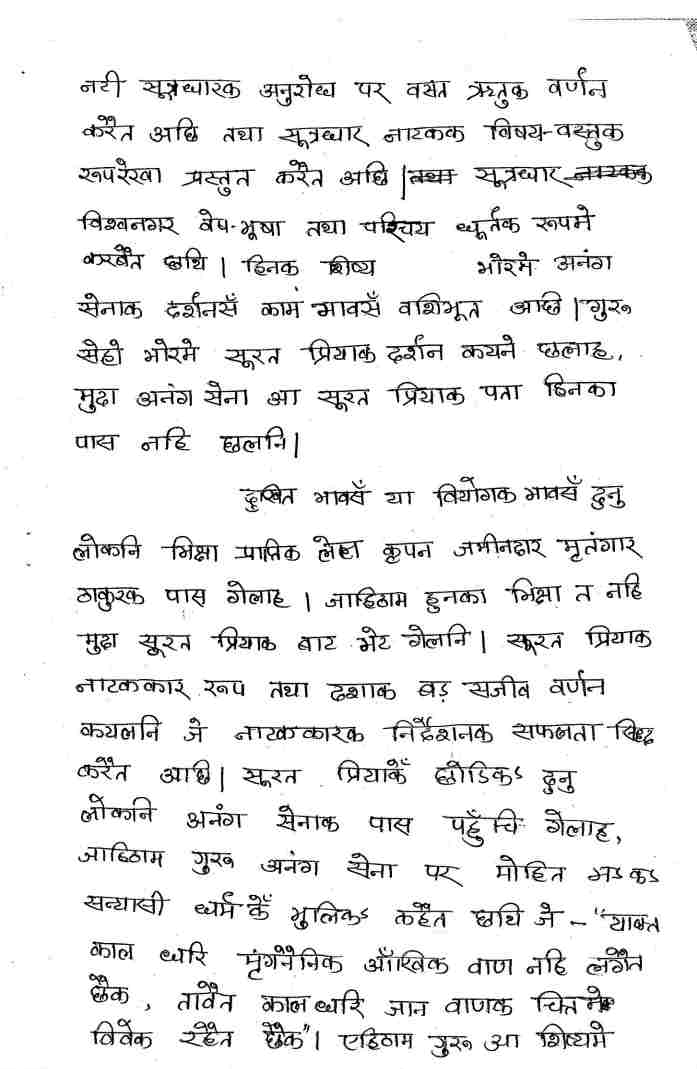 नटी सूत्रधारक अनुरोध पर वसंत ऋतुक वर्णन
करैत अछि तथा सूत्रधार नाटकक विषय-वस्तुक
रूपरेखा प्रस्तुत करैत अछि | तथा सूत्रधार नाटकक
विश्वनगर वेष-भूषा तथा परिचय धूर्तक रूपमे
करबैत छथि | हिनक शिष्य भोरमे अनंग
सेनाक दर्शनसँ काम भावसँ वशिभूत अछि | गुरू
सेहो भोरमे सूरत प्रियाक दर्शन कयने छलाह,
मुदा अनंग सेना आ सूरत प्रियाक पता हिनका
पास नहि छलनि |
दुखित भावसँ या वियोगक भावसँ दुनु
लोकनि भिक्षा प्राप्तिक लेल कृपन जमीनदार मृतंगार
ठाकुरक पास गेलाह | जाहिठाम हुनका भिक्षा त नहि
मुदा सूरत प्रियाक बाट भेट गेलनि | सूरत प्रियाक
नाटककार रूप तथा दशाक बड़ सजीव वर्णन
कयलनि जे नाटककारक निर्देशनक सफलता सिद्ध
करैत अछि | सूरत प्रियाकेँ छोडिकऽ दुनु
लोकनि अनंग सेनाक पास पहुँचि गेलाह,
जाहिठाम गुरू अनंग सेना पर मोहित भऽ कऽ
सन्यासी धर्म केँ भुलिकऽ कहैत छथि जे - "यावत
काल धरि मृंगनैनिक आँखिक वाण नहि लगैत
छैक, तावैत काल धरि जान वाणक चितमे
विवेक रहैत छैक" | एहिठाम गुरू आ शिष्यमे